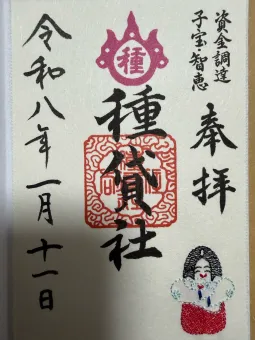 資金調達
子宝・智恵
奉拝
種
種貸社
令和八年一月十一日